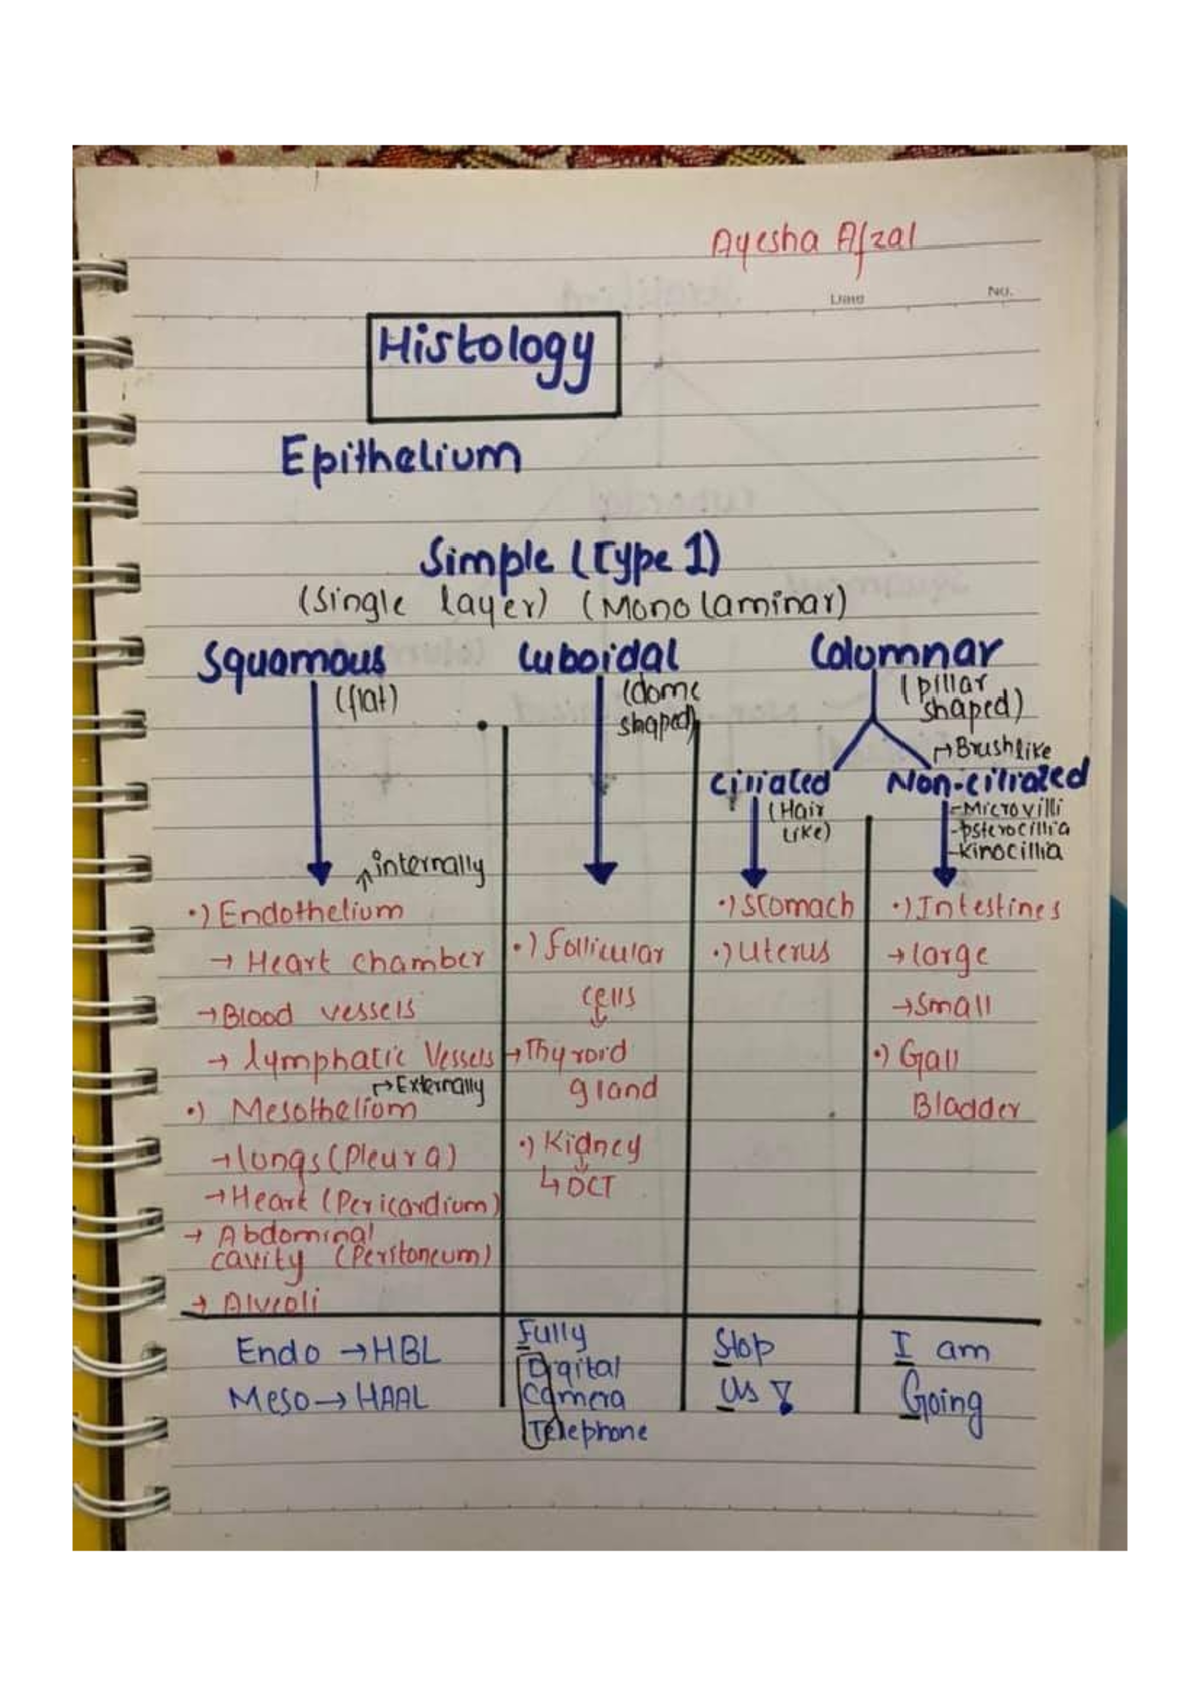 Ayesha Afzal
Date
No.
Histology
Epithelium
Simple (Type 1)
(Single layer) (Mono laminar)
Squamous
(flat)
↱internally
•) Endothelium
→ Heart chamber
→ Blood vessels
→ lymphatic Vessels
↱Externally
•) Mesothelium
→ lungs (Pleura)
→ Heart (Pericardium)
→ Abdominal
cavity (Peritoneum)
→ Alveoli
Endo → HBL
Meso → HAAL
Cuboidal
(dome
shaped)
•) follicular
cells
→ Thyroid
gland
•) Kidney
↳ DCT
Fully
Digital
Camera
Telephone
Columnar
(pillar
shaped)
Ciliated
(Hair
Like)
•) Stomach
•) Uterus
Stop
Us
↱Brushlike
Non-ciliated
-Microvilli
-psterocillia
-kinocillia
•) Intestines
→ large
→ Small
•) Gall
Bladder
I am
Going